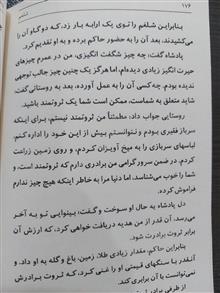 ۱۷۶
بنابراین شلغم را توی یک ارابه بار زد، که دو گاو آن را
می‌کشیدند. بعد آن را به حضور حاکم برده و به او تقدیم کرد.
پادشاه گفت: چه چیز شگفت انگیزی، من در عمرم چیزهای
حیرت انگیز زیادی دیده‌ام، اما هرگز یک چنین چیز جالب توجهی
ندیده بودم. چه کسی آن را به عمل آورده. بعد به روستایی گفت
شاید متعلق به شماست، ممکن است شما یک ثروتمند باشید.
روستایی جواب داد: مطمئناً من ثروتمند نیستم، برای اینکه
سرباز فقیری بودم و نتوانستم بیش از این خود را اداره کنم.
لباسهای سربازی را به میخ آویزان کردم، و روی زمین زراعت
کردم. در ضمن سرور گرامی من برادری دارم که ثروتمند است، و
شما را خوب می‌شناسد. اما دنیا مرا به خاطر اینکه هیچ چیز ندارم
فراموش کرده.
دل پادشاه به حال او سوخت و گفت: بینوایی تو به آخر
می‌رسد. آن قدر از من هدیه دریافت خواهی کرد، که ارزش آن
برابر ثروت برادرت شود.
بنابراین حاکم، مقدار زیادی طلا، زمین، باغ و گله به او داد. و
آنقدر با سنگهای قیمتی او را غنی کرد، که ثروت برادرش
نمی‌توانست با آن برابری کند.
از طرفی برادر